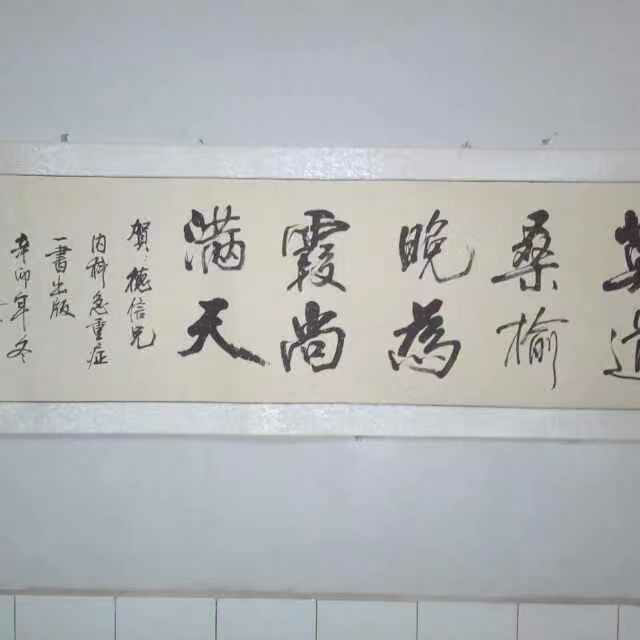 莫道
桑榆
晚為
霞尚
滿天
賀德信兄
内科急重症
一書出版
辛卯年冬